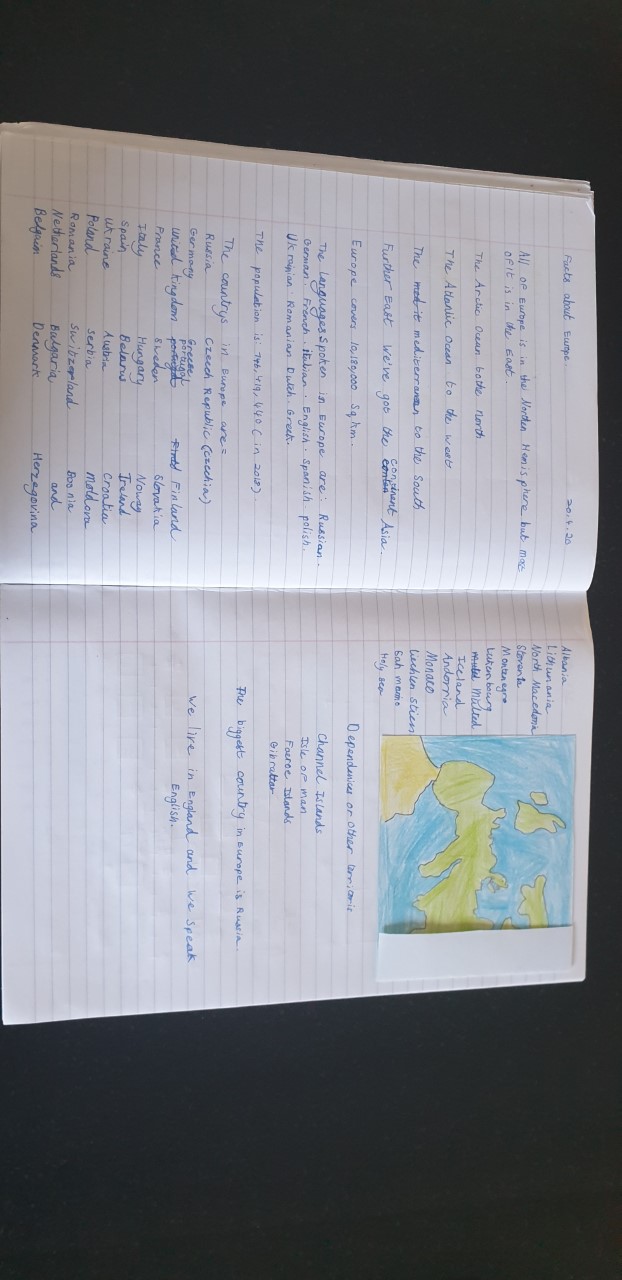 20.4.20
Facts about Europe
All of Europe is in the Norden Hemisphere but most
of it is in the East.
The Arctic Ocean to the north
The Atlantic Ocean to the west
The med it mediterranean to the South
Further East we've got the continent Asia.
Europe covers 10,180,000 sq km.
The languages Spoken in Europe are: Russian.
German. French. Italian. English. Spanish polish.
Ukranian Romanian Dutch. Greek.
The population is: 746,419,440 (in 2018)
The countrys in Europe are=
Russia Czech Republic (Czechia)
Germany Greece portugal
United Kingdom portugal Finland
France Sweden Slovakia
Italy Hungary Noway
Spain Belarus Ireland
Ukraine Austria Croatia
Poland Serbia Moldova
Romania Switzerland Bosnia
Netherlands Bulgaria and
Belgium Denmark Herzegovina
Albania
Lithunania
North Macedonia
Slovenia
Montenegro
Luxembourg
Malted
Iceland
Andorria
Monaco
Liechten Stien
San marino
Holy see
Dependencies or other territoris
Channel Islands
Isle of Man
Faeroe Islands
Gibralter
The biggest country in Europe is Russia.
We live in England and we speak
English.